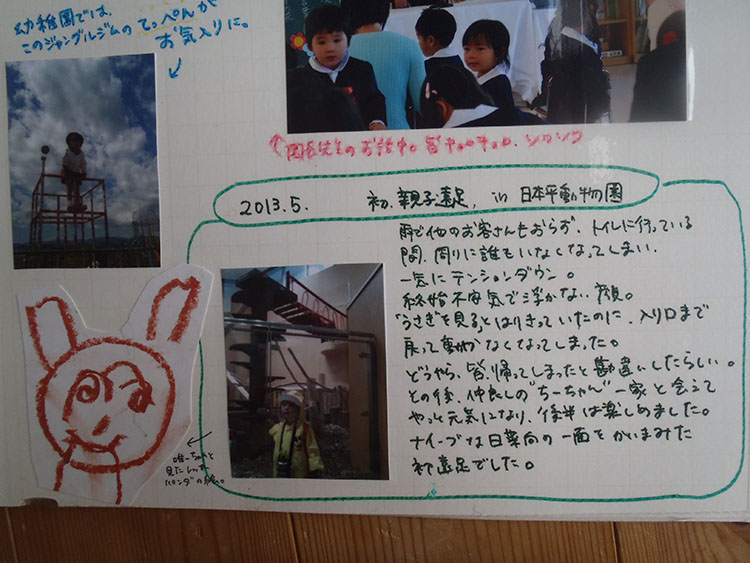 幼稚園では、
このジャングルジムの てっぺんが
お気入りに。
園長先生のお話中。皆キョロキョロ、
2013.5. 初、親子遠足, in 日本平動物園
雨で他のお客さんもおらず、トイレに行っている
間、周りに誰もいなくなってしまい、
一気にテンションダウン。
終始不安気で浮かない顔。
「うさぎを見る」とはりきっていたのに、入り口まで
戻って動かなくなってしまった。
どうやら、皆、帰ってしまったと勘違いしたらしい。
その後、仲良しの"ちーちゃん"一家と会えて
やっと元気になり、後半は楽しめました。
ナイーブな日菜向の一面をかいまみた
初遠足でした。
唯一ちゃんと
見たレッサー
パンダの絵。